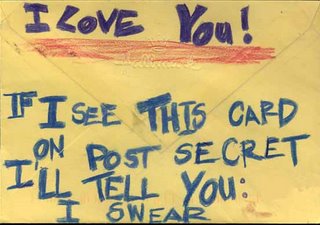 I LOVE YOU!
IF I SEE THIS CARD
ON POST SECRET
I'LL TELL YOU:
I SWEAR